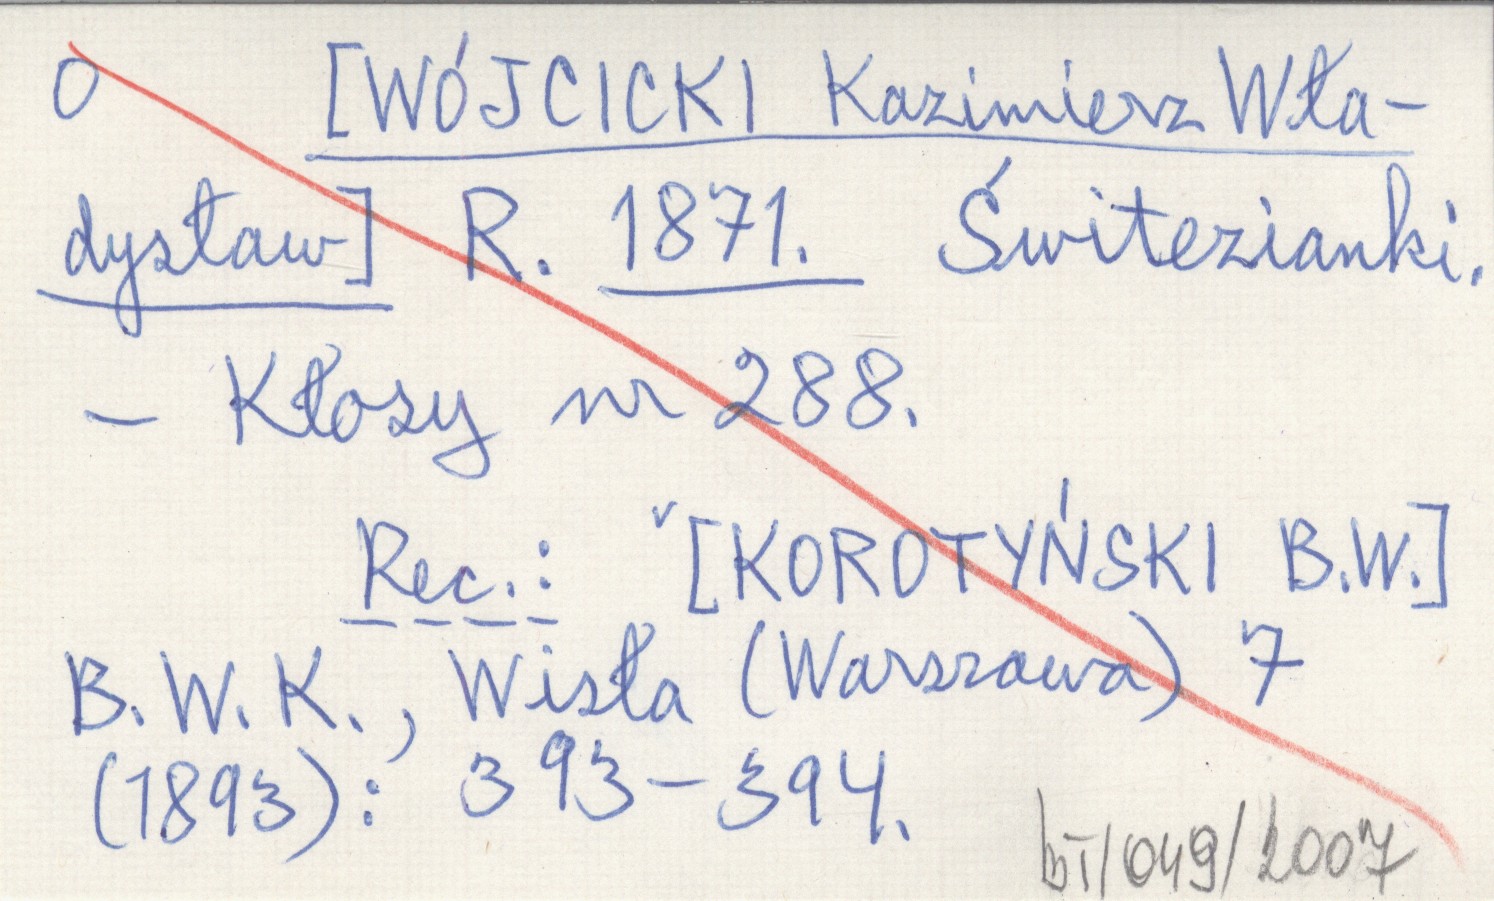 O [WÓJCICKI Kazimierz Wła-
dysław] R. 1871. Świtezianki.
– Kłosy nr 288.
Rec.: ˅[KOROTYŃSKI B.W.]
B.W.K., Wisła (Warszawa) 7
(1893): 393–394.
bT/049/2007